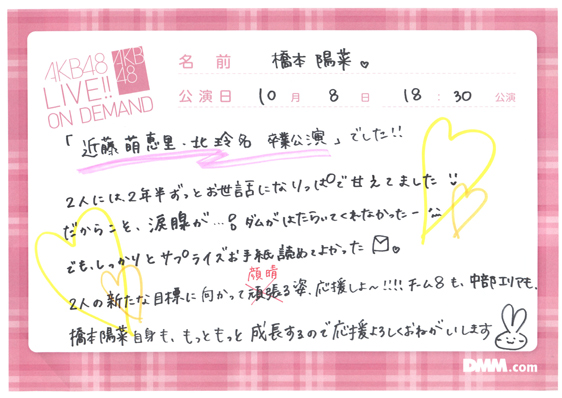 AKB48
LIVE!!
ON DEMAND
AKB
48
名前 橋本 陽菜
公演日 10月 8日 18:30 公演
「近藤 萌恵里・北 玲名 卒業公演」でした!!
2人には、2年半ずっとお世話になりっぱで甘えてました
だからこそ、涙腺が…。ダムがはたらいてくれなかったー
でも、しっかりとサプライズお手紙読めてよかった
顔晴
2人の新たな目標に向かって頑張る姿、応援しよ〜!!!! チーム8も、中部エリアも、
橋本陽菜自身も、もっともっと成長するので応援よろしくおねがいします
DMM.com